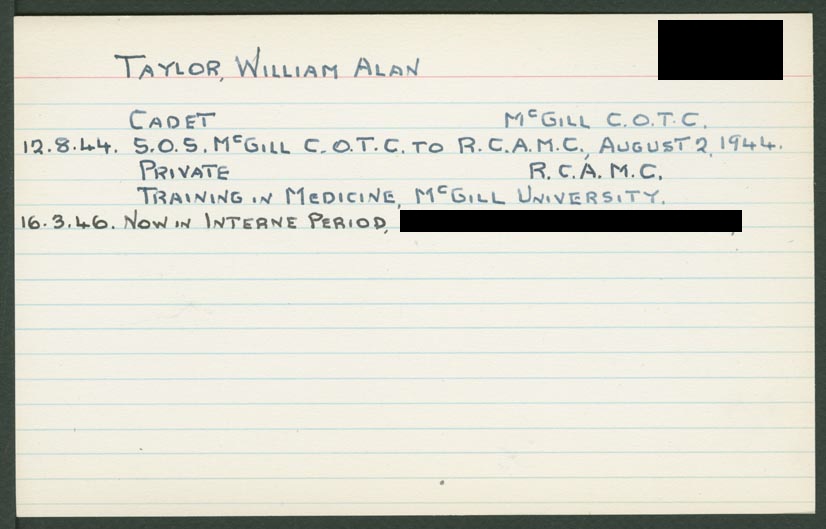 TAYLOR, WILLIAM ALAN
CADET McGILL C.O.T.C.
12.8.44. S.O.S. McGILL C.O.T.C. TO R.C.A.M.C., AUGUST 2, 1944.
PRIVATE R.C.A.M.C.
TRAINING IN MEDICINE, McGILL UNIVERSITY.
16.3.46. NOW IN INTERNE PERIOD,